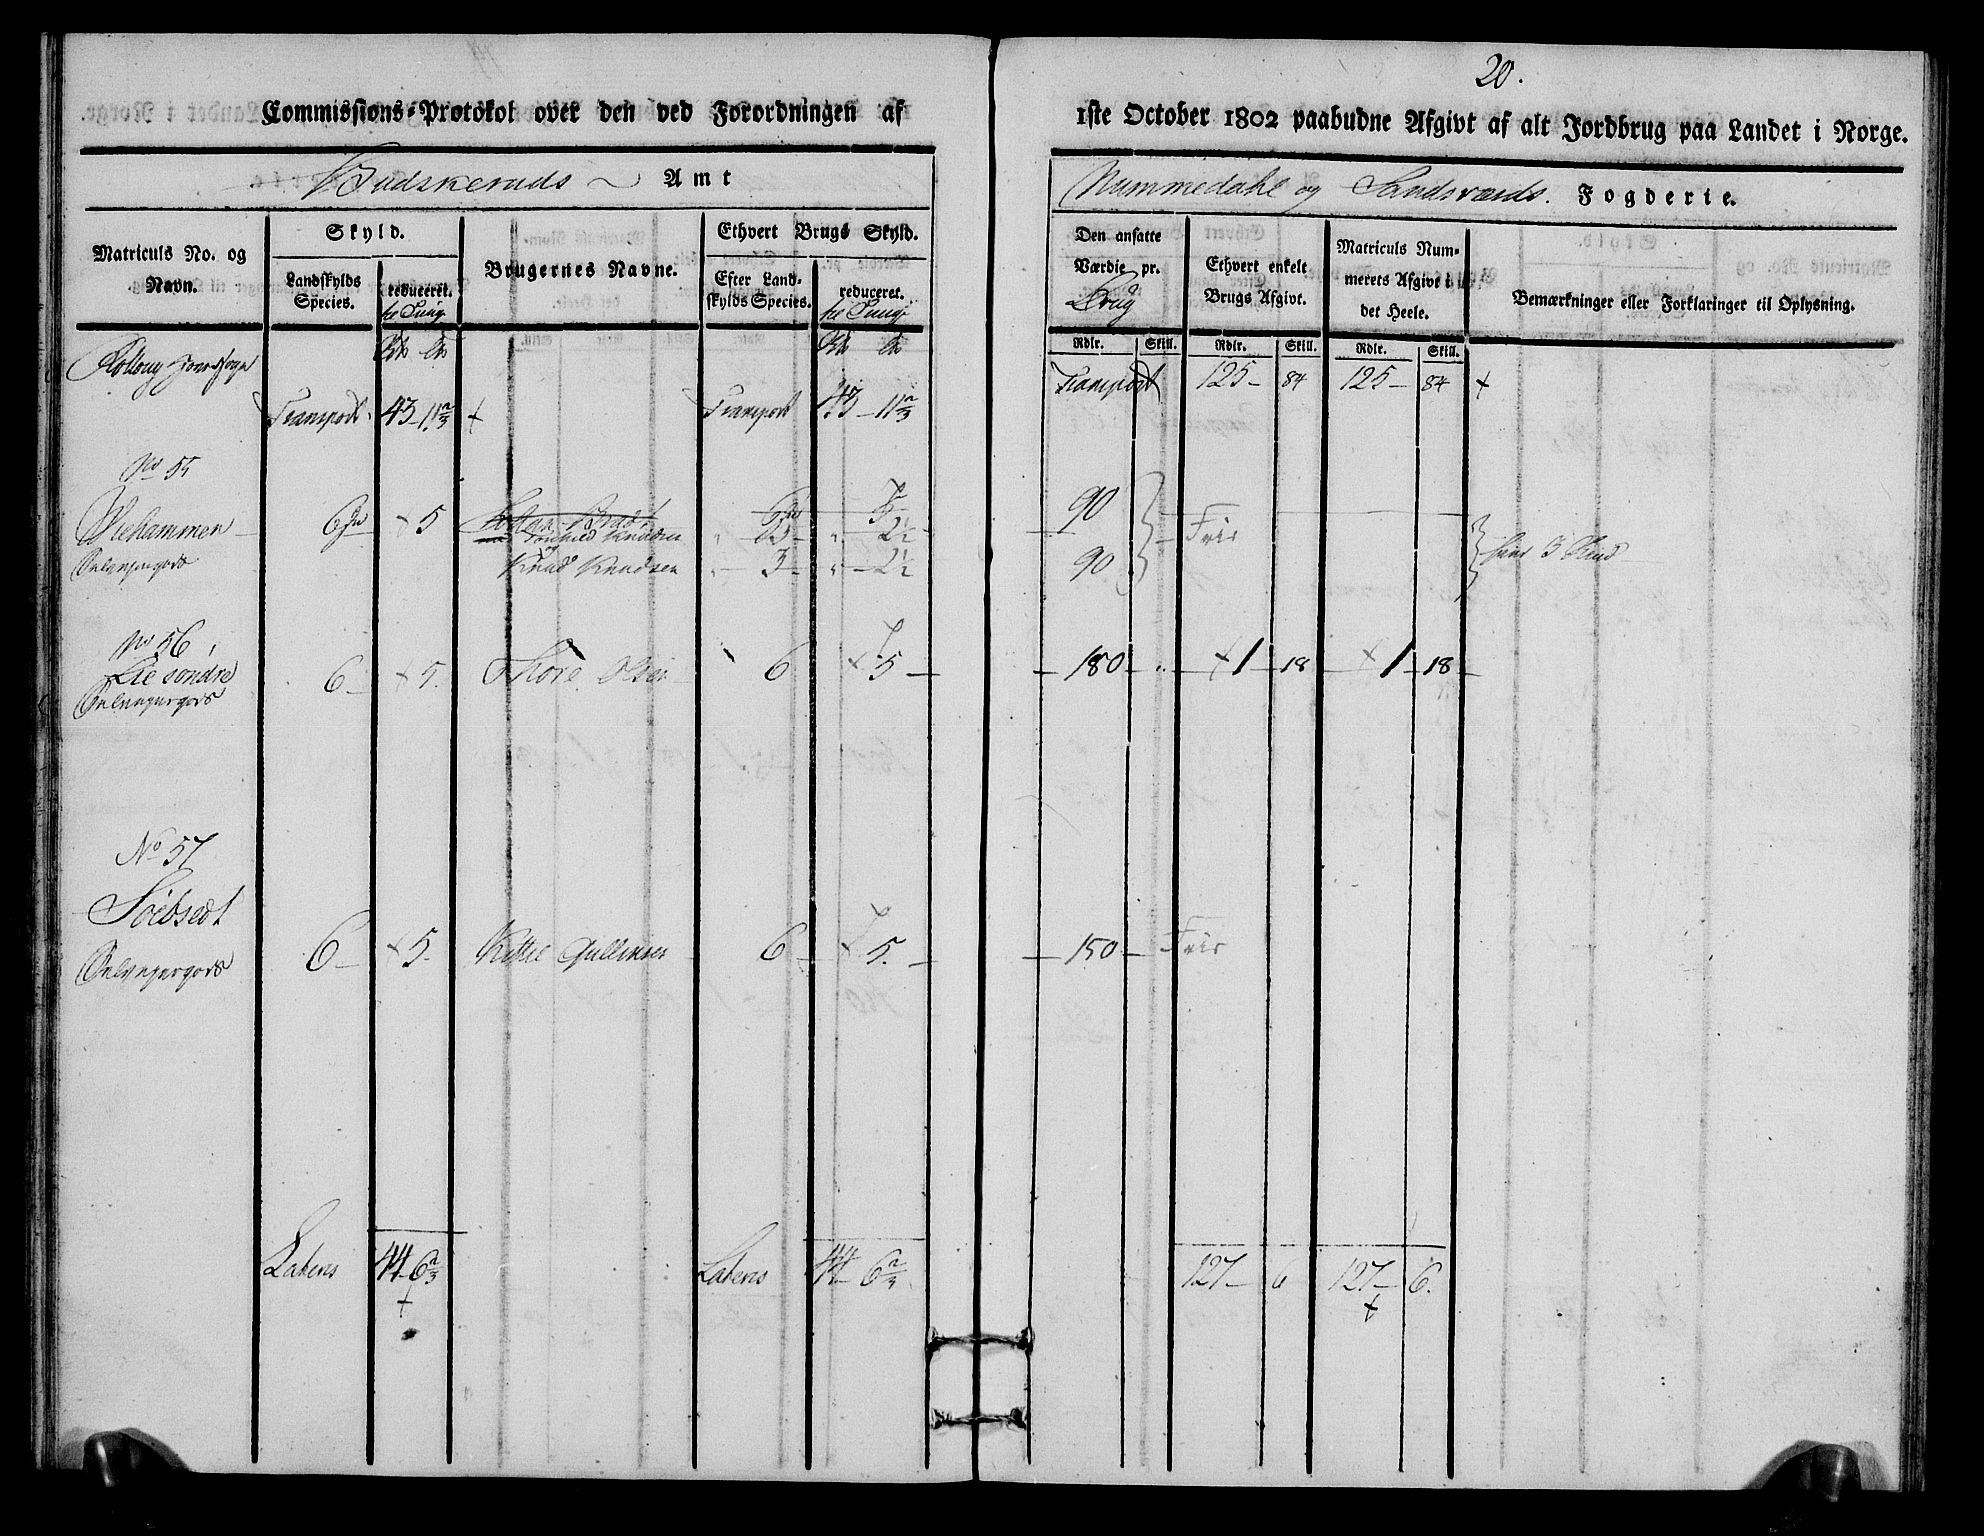 20.
Commissions-Protokol over den ved Forordningen af
1ste October 1802 paabudne Afgivt af alt Jordbrug paa Landet i Norge.
Budskeruds Amt
Nummedahl og Sandsværds. Fogderie.
Matriculs No. og Navn.
Skyld.
Landskylds Species.
reduceret.
Brugernes Navne.
Ethvert Brugs Skyld.
Efter Landskylds Species.
reduceret.
Den ansatte Værdie pr. Brug
Ethvert enkelt Brugs Afgivt.
Matriculs Nummerets Afgivt i det Heele.
Bemærkninger eller Forklaringer til Oplysning.
Rdlr. Skill. Rdlr. Skill. Rdlr. Skill.
Rolloug
Transport 43 - 11 2/3 Transport 43 - 11 2/3 Transport 125 - 84 125 - 84
No 55
Wiehammen 6 5
Knudsen 3 2½ 90 Frie
Selveyergods Knud Knudsen 3 2½ 90
No 56
Lie söndre 6 5 Thore Olsen 6 5 180 1 - 18 1 - 18
Selveyergods
No 57
6 5. Kittil 6 5. 150 Frie
Selveyergods
Lateris 44 - 6 2/3 Lateris 44 - 6 2/3 127 - 6 127 - 6.